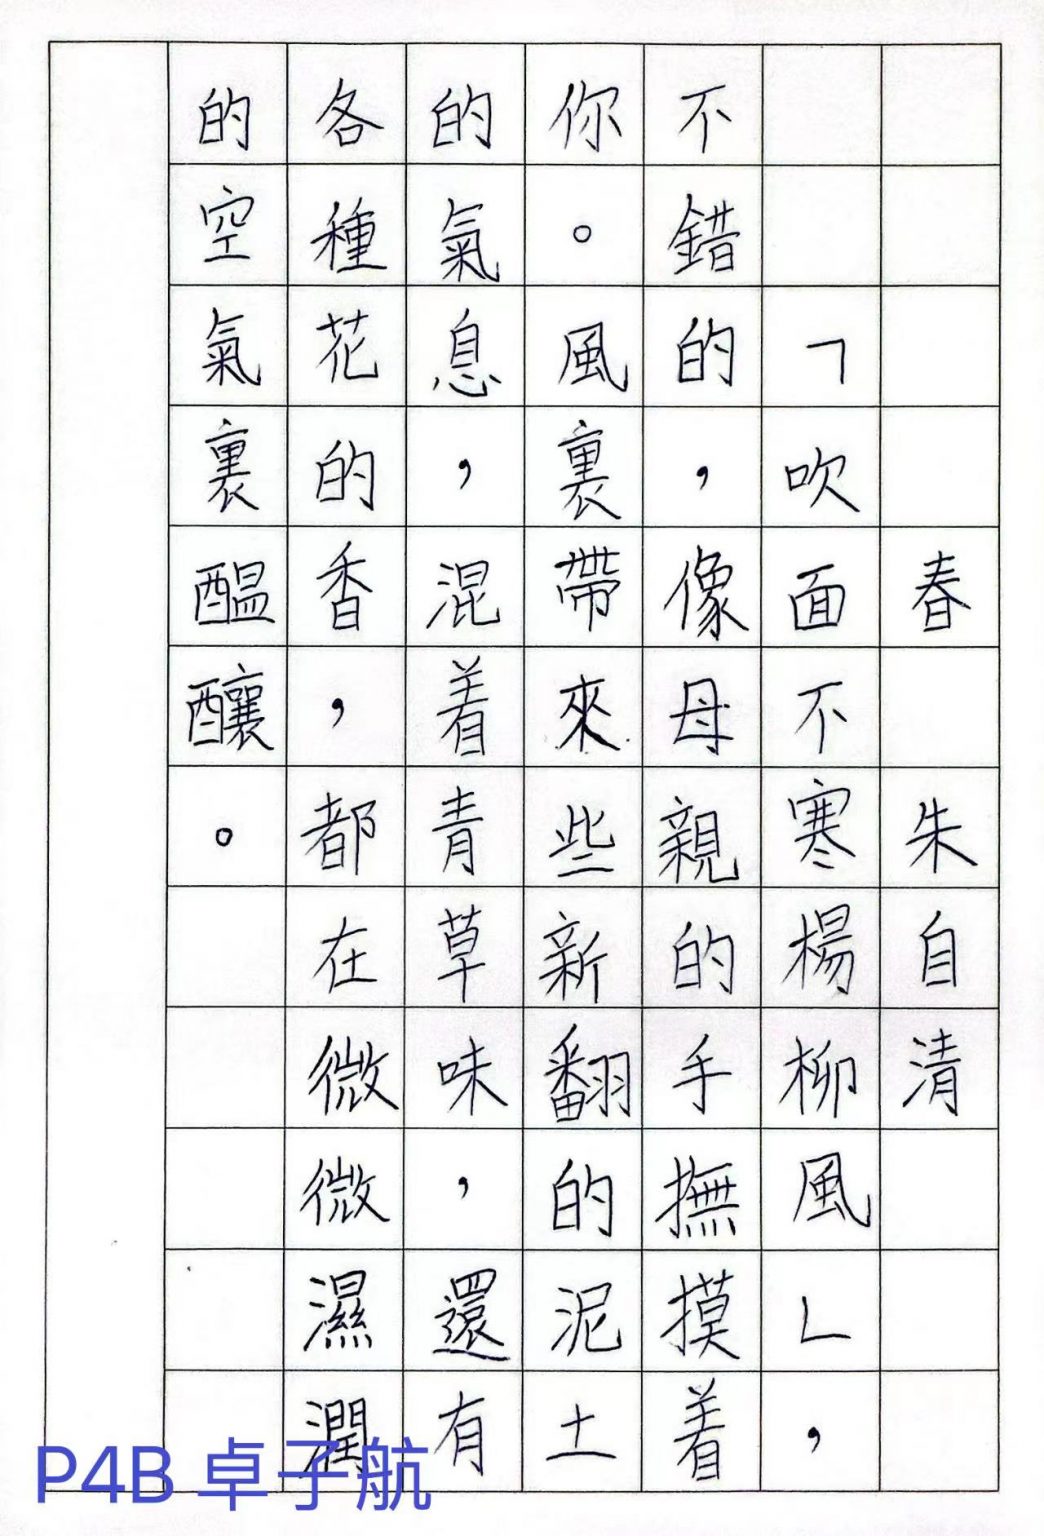 春 朱自清
「吹面不寒楊柳風」，
不錯的，像母親的手撫摸着
你。風裏帶來些新翻的泥土
的氣息，混着青草味，還有
各種花的香，都在微微濕潤
的空氣裏醖釀。
P4B 卓子航